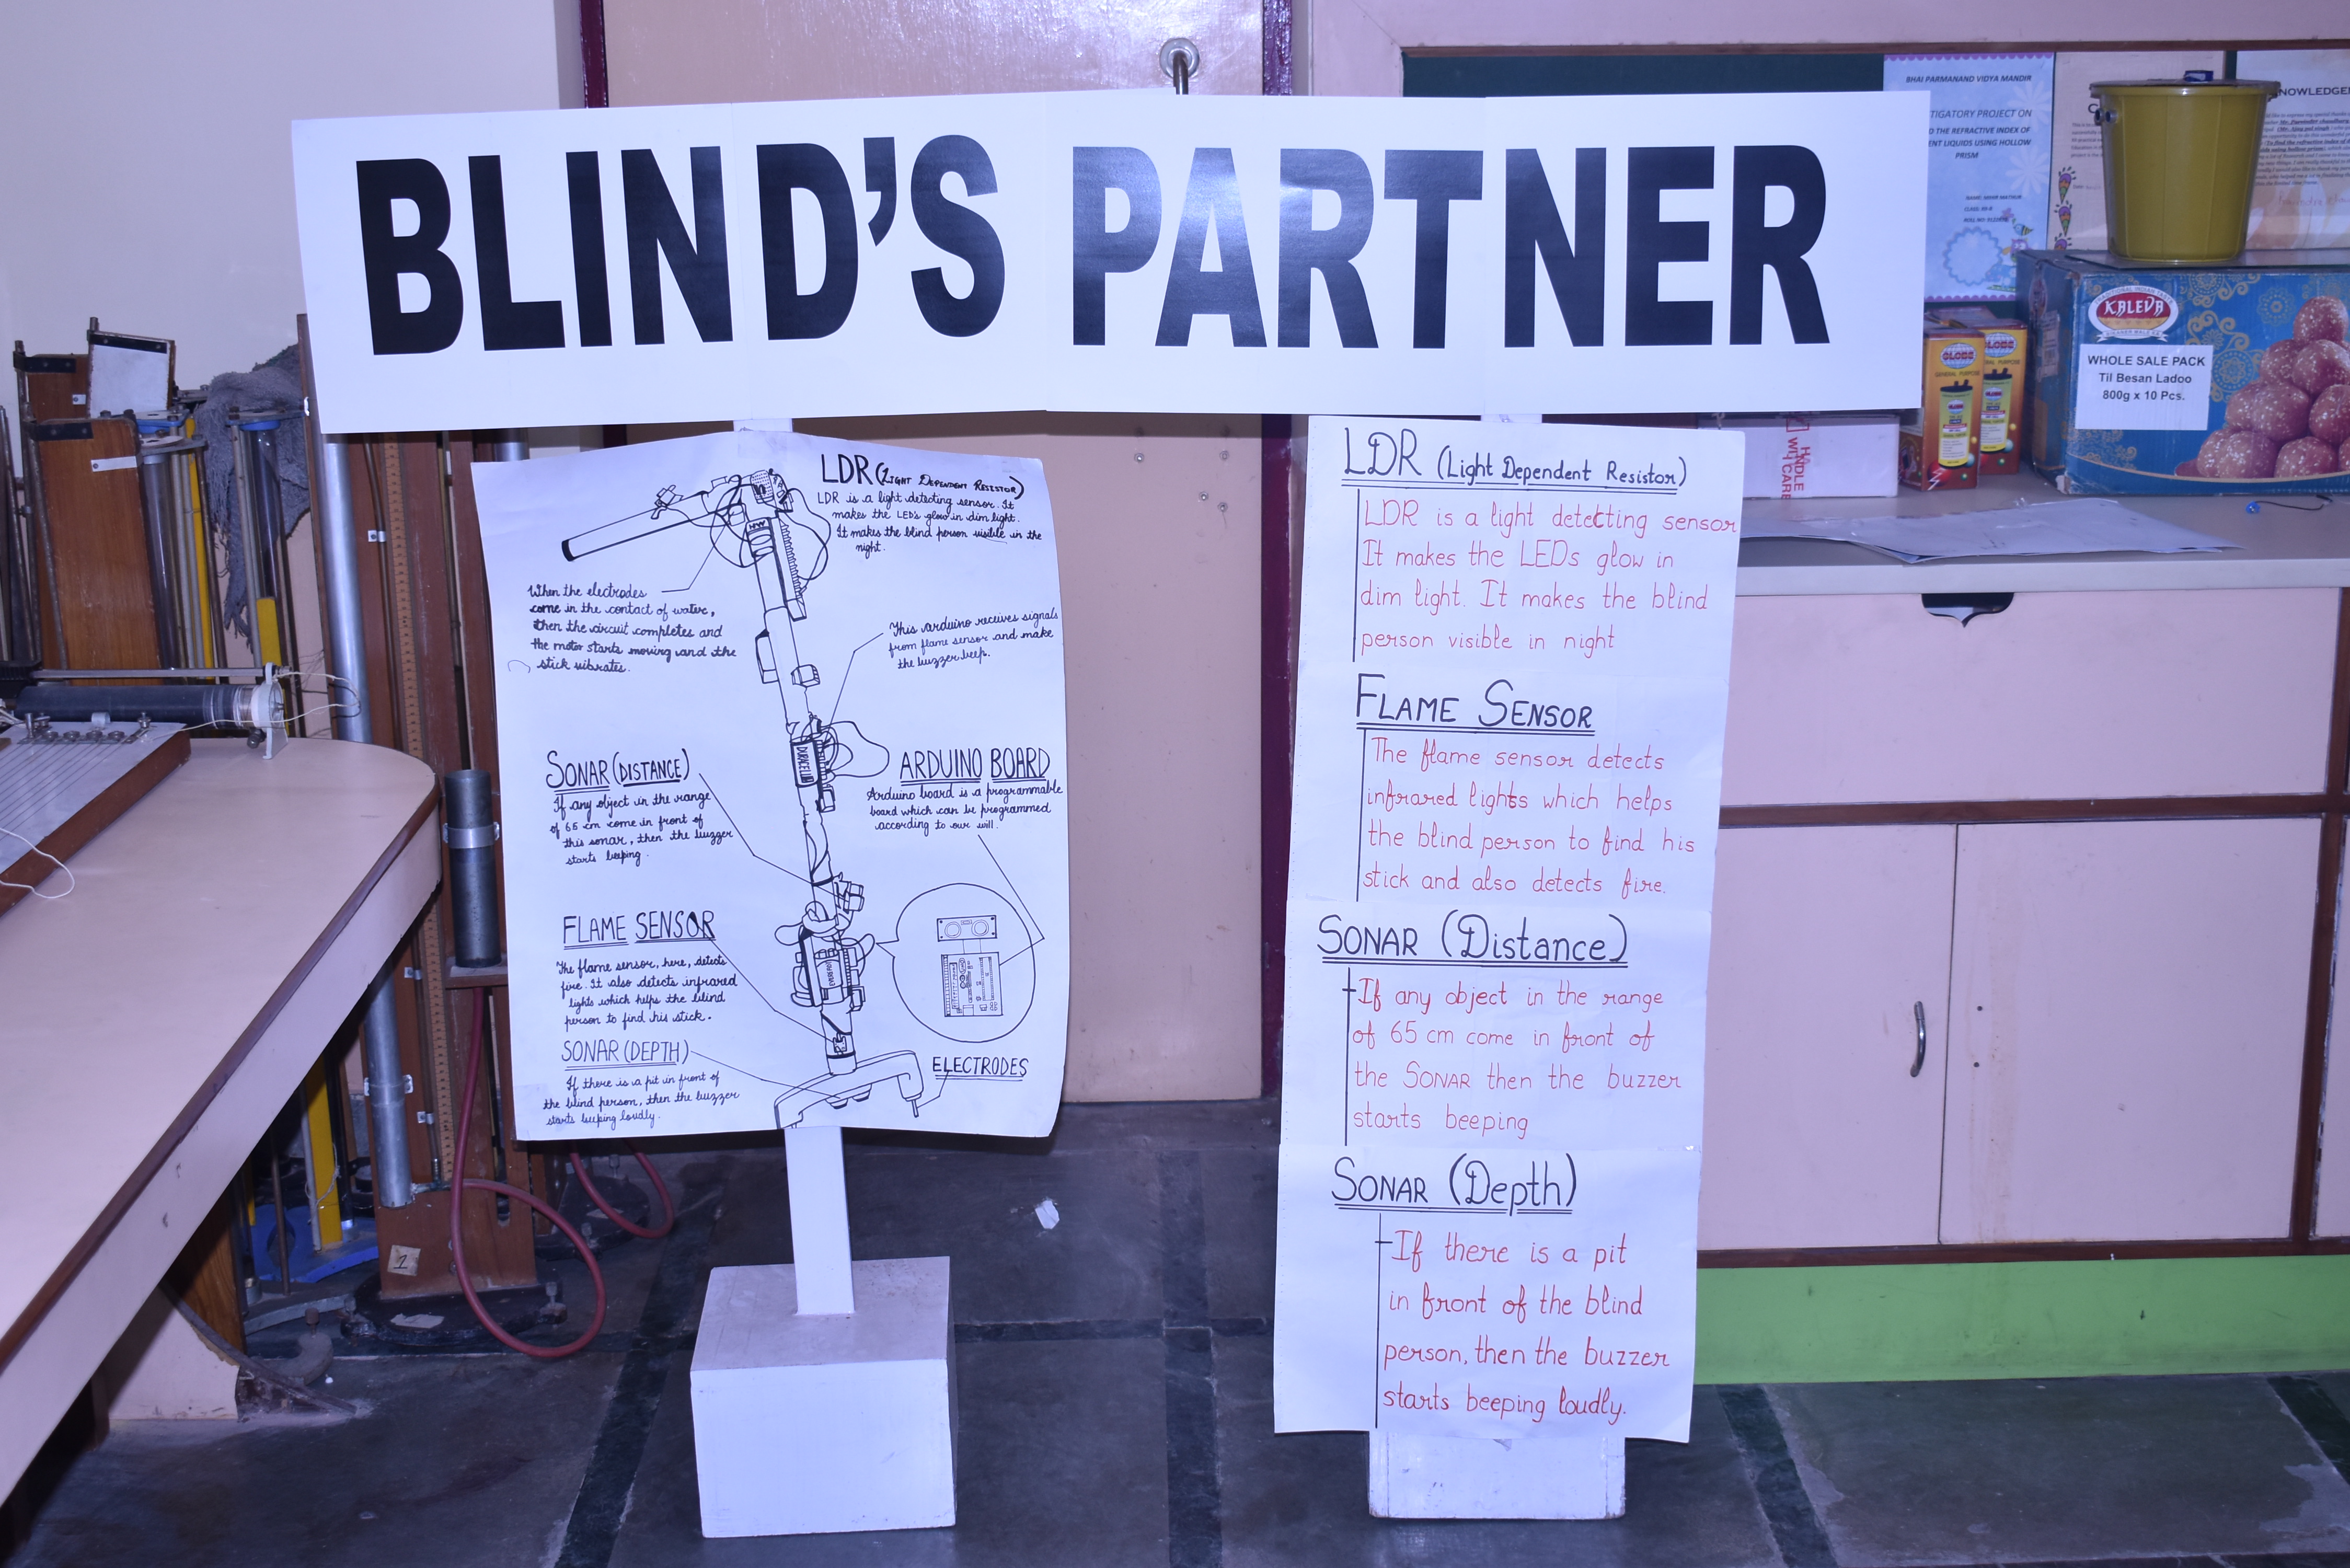 BLIND'S PARTNER
LDR (LIGHT DEPENDENT RESISTOR)
LDR is a light detecting sensor. It
makes the LEDs glow in dim light.
It makes the blind person visible in the
night.
When the electrodes
come in the contact of water,
then the circuit completes and
the motor starts moving and the
stick vibrates.
This arduino receives signals
from flame sensor and make
the buzzer beep.
SONAR (DISTANCE)
If any object in the range
of 65 cm come in front of
this sonar, then the buzzer
starts beeping.
ARDUINO BOARD
Arduino board is a programmable
board which can be programmed
according to our will.
FLAME SENSOR
The flame sensor, here, detects
fire. It also detects infrared
lights which helps the blind
person to find his stick.
SONAR (DEPTH)
If there is a pit in front of
the blind person, then the buzzer
starts beeping loudly.
ELECTRODES
HW
DURACELL
LDR (Light Dependent Resistor)
LDR is a light detecting sensor
It makes the LEDs glow in
dim light. It makes the blind
person visible in night
FLAME SENSOR
The flame sensor detects
infrared lights which helps
the blind person to find his
stick and also detects fire.
SONAR (Distance)
If any object in the range
of 65 cm come in front of
the SONAR then the buzzer
starts beeping
SONAR (Depth)
If there is a pit
in front of the blind
person, then the buzzer
starts beeping loudly.
BHAI PARMANAND VIDYA MANDIR
TIGATORY PROJECT ON
D THE REFRACTIVE INDEX OF
ENT LIQUIDS USING HOLLOW
PRISM
NOWLEDGE
KALEVA
WHOLE SALE PACK
Til Besan Ladoo
800g x 10 Pcs.
GLOBE
GENERAL PURPOSE
GLOBE
HANDLE
WITH CARE
1